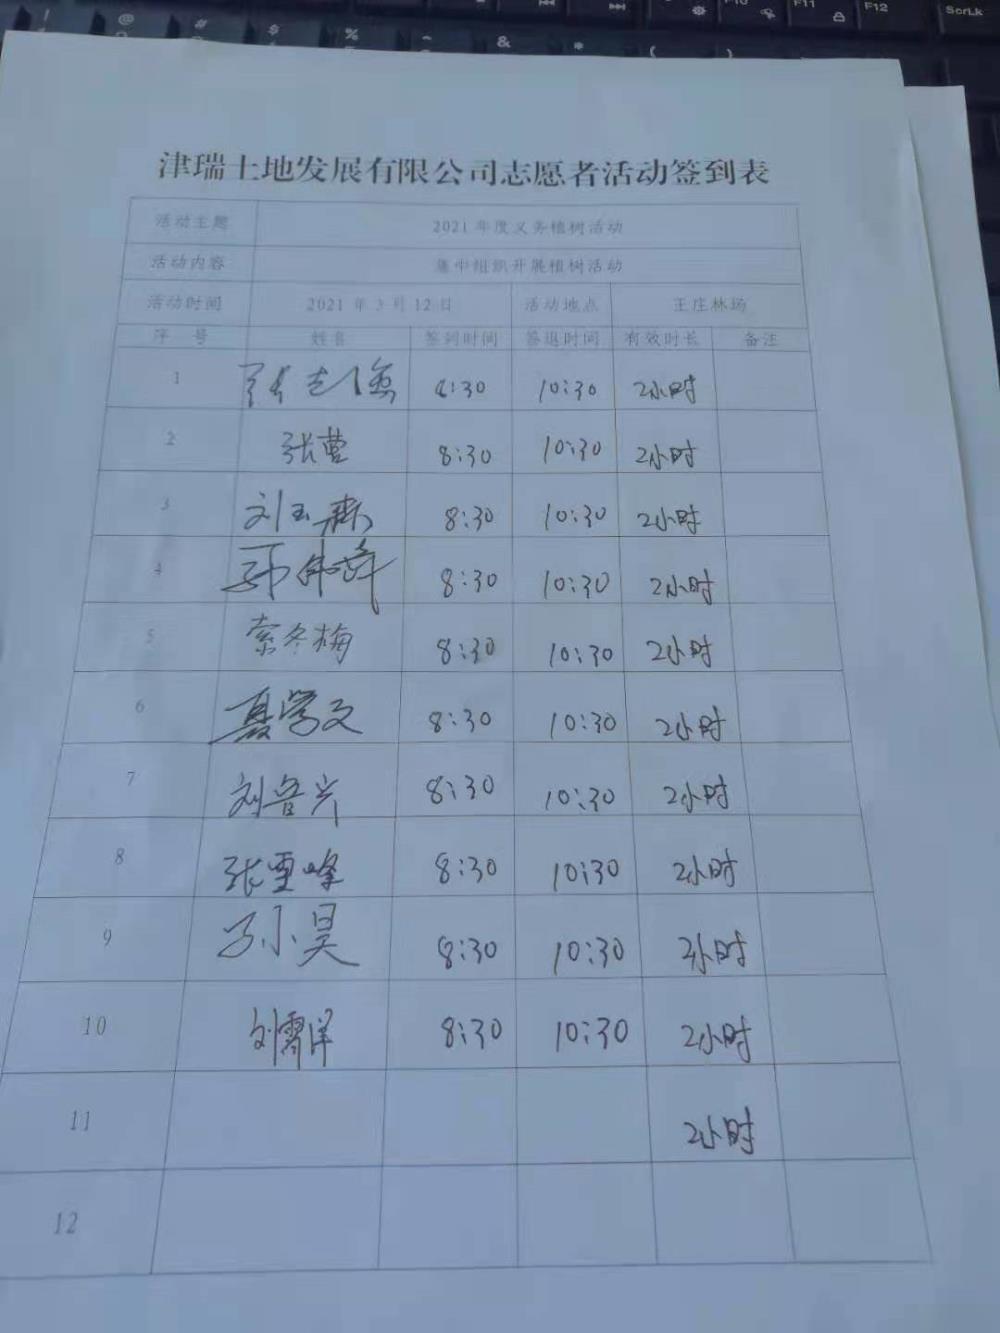 ! @ # $ % & * ( ) F10 F11 F12 ScrLk
津瑞土地发展有限公司志愿者活动签到表
活动主题 2021年度义务植树活动
活动内容 集中组织开展植树活动
活动时间 2021年3月12日 活动地点 王庄林场
序 号 姓名 签到时间 签退时间 有效时长 备注
1 8:30 10:30 2小时
2 张曹 8:30 10:30 2小时
3 刘玉森 8:30 10:30 2小时
4 8:30 10:30 2小时
5 索冬梅 8:30 10:30 2小时
6 夏学文 8:30 10:30 2小时
7 刘鲁兴 8:30 10:30 2小时
8 张雪峰 8:30 10:30 2小时
9 孙小昊 8:30 10:30 2小时
10 8:30 10:30 2小时
11 2小时
12